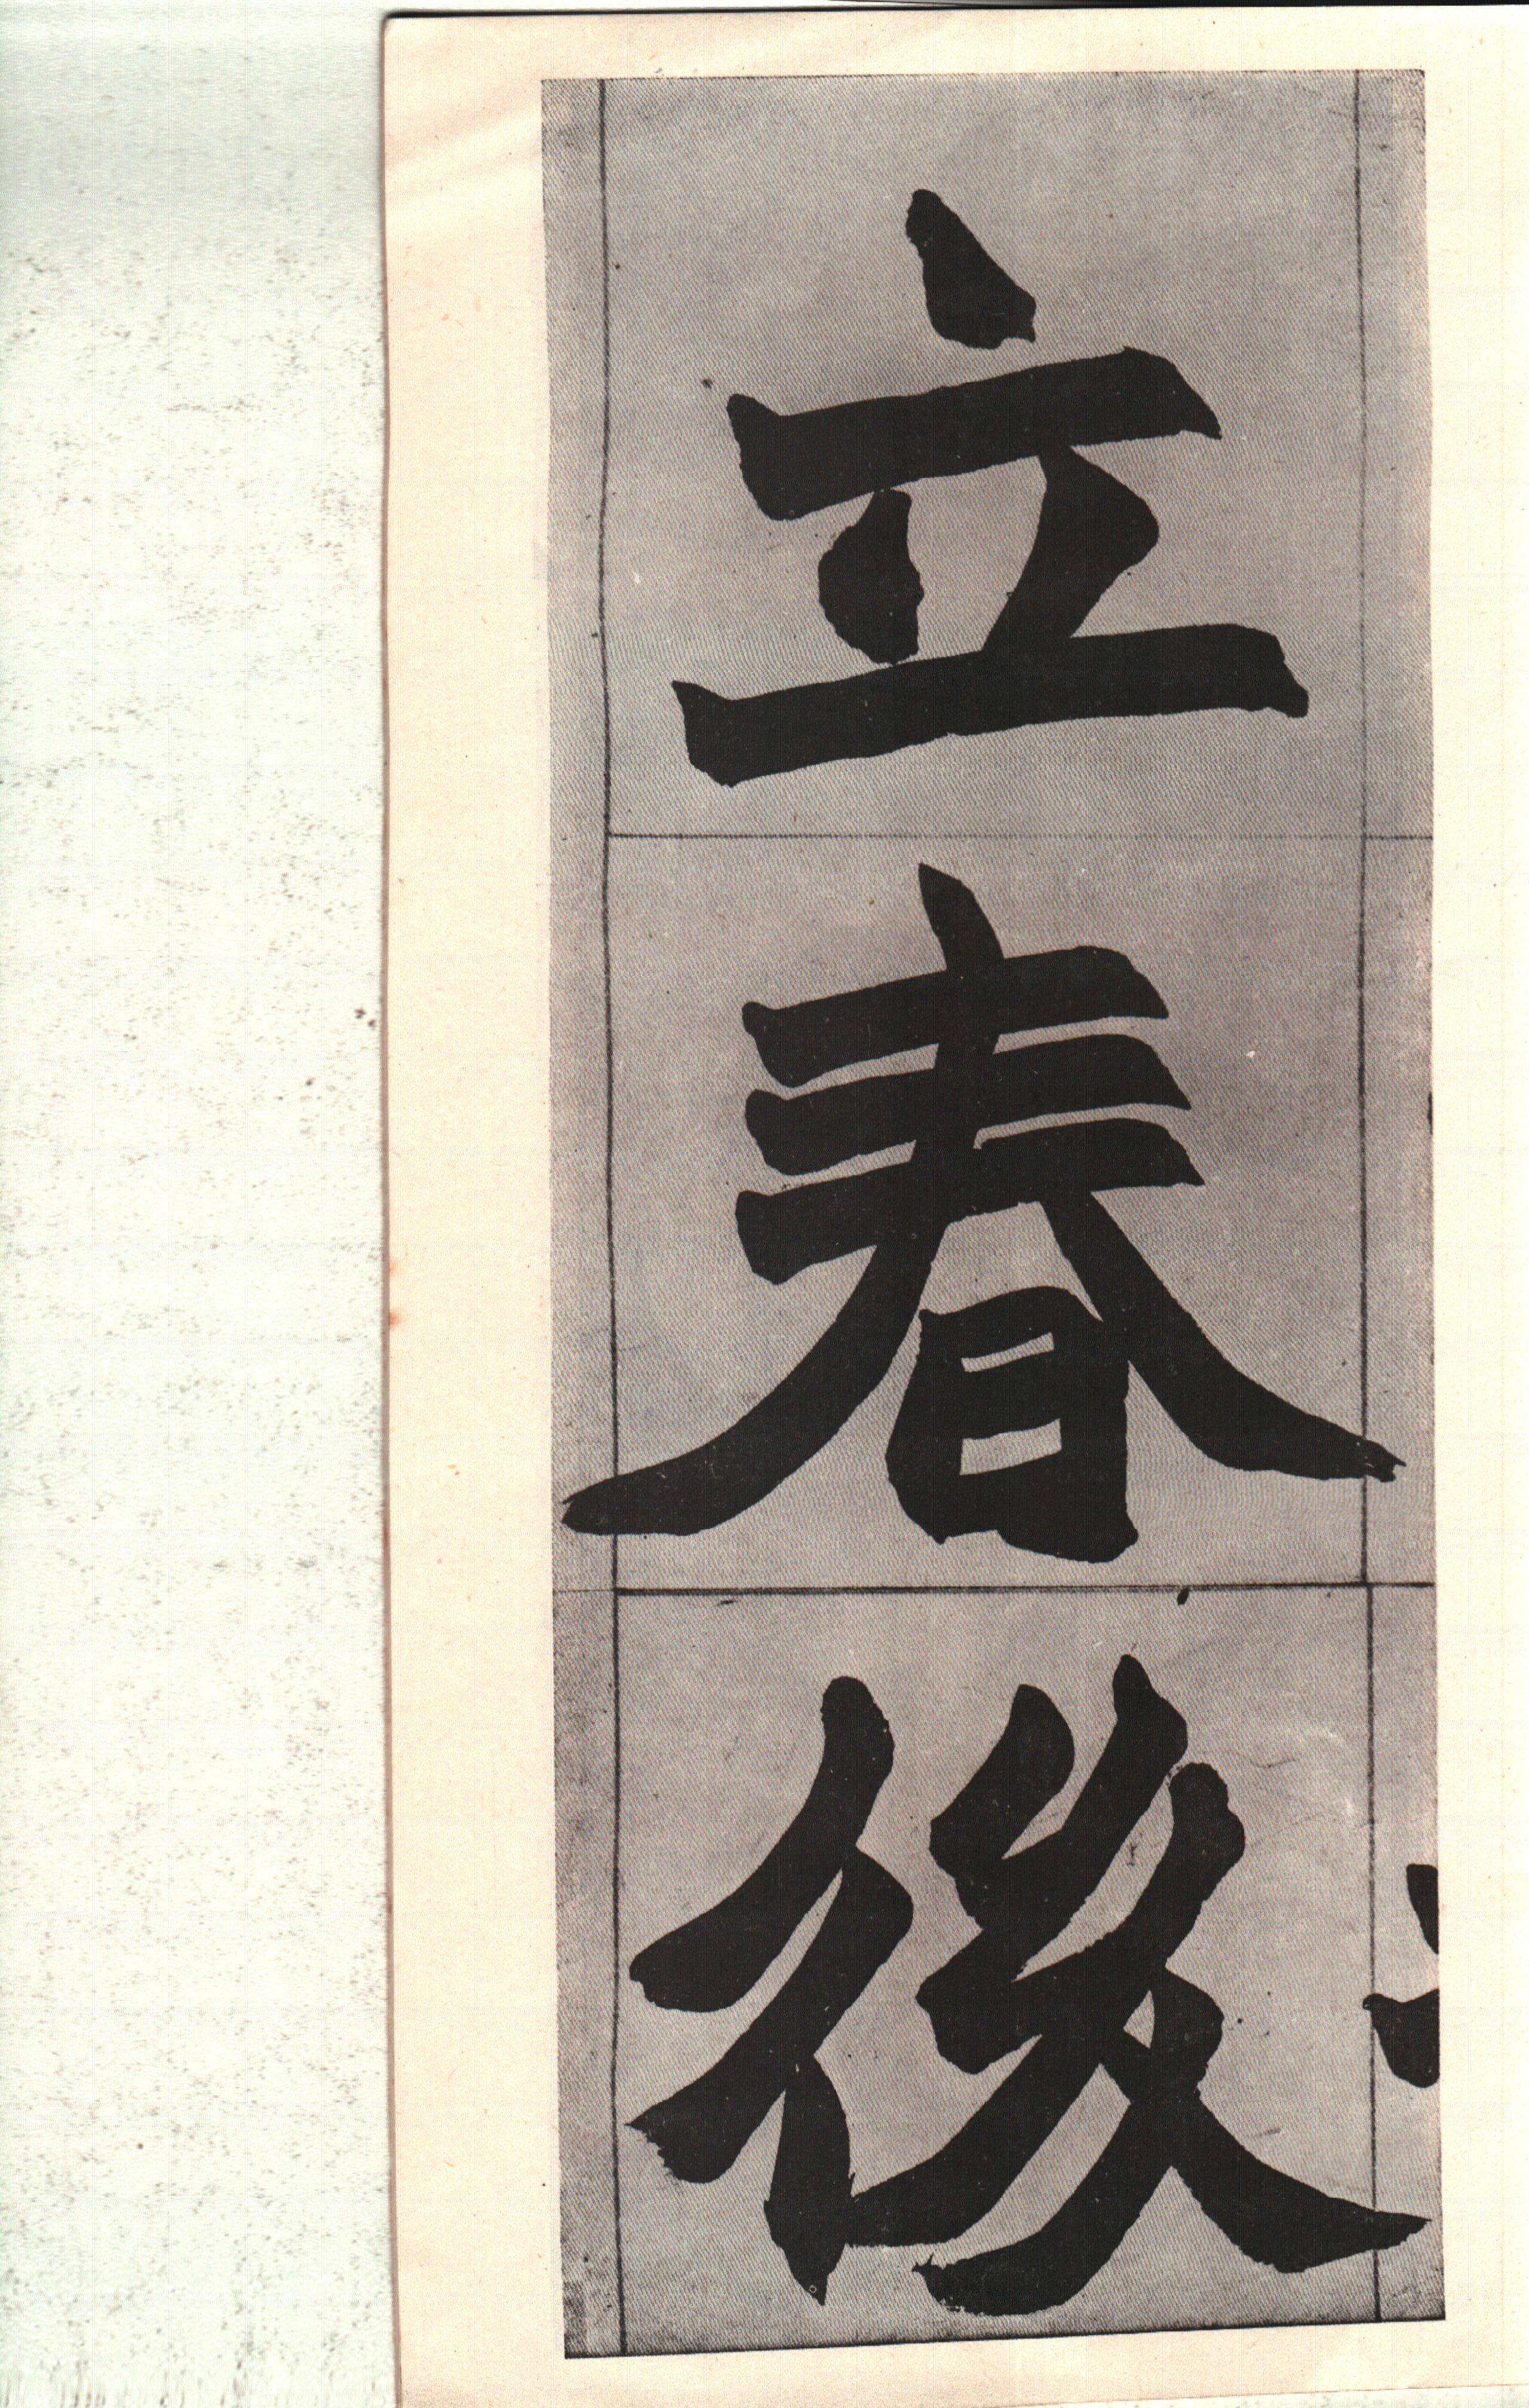 立春後